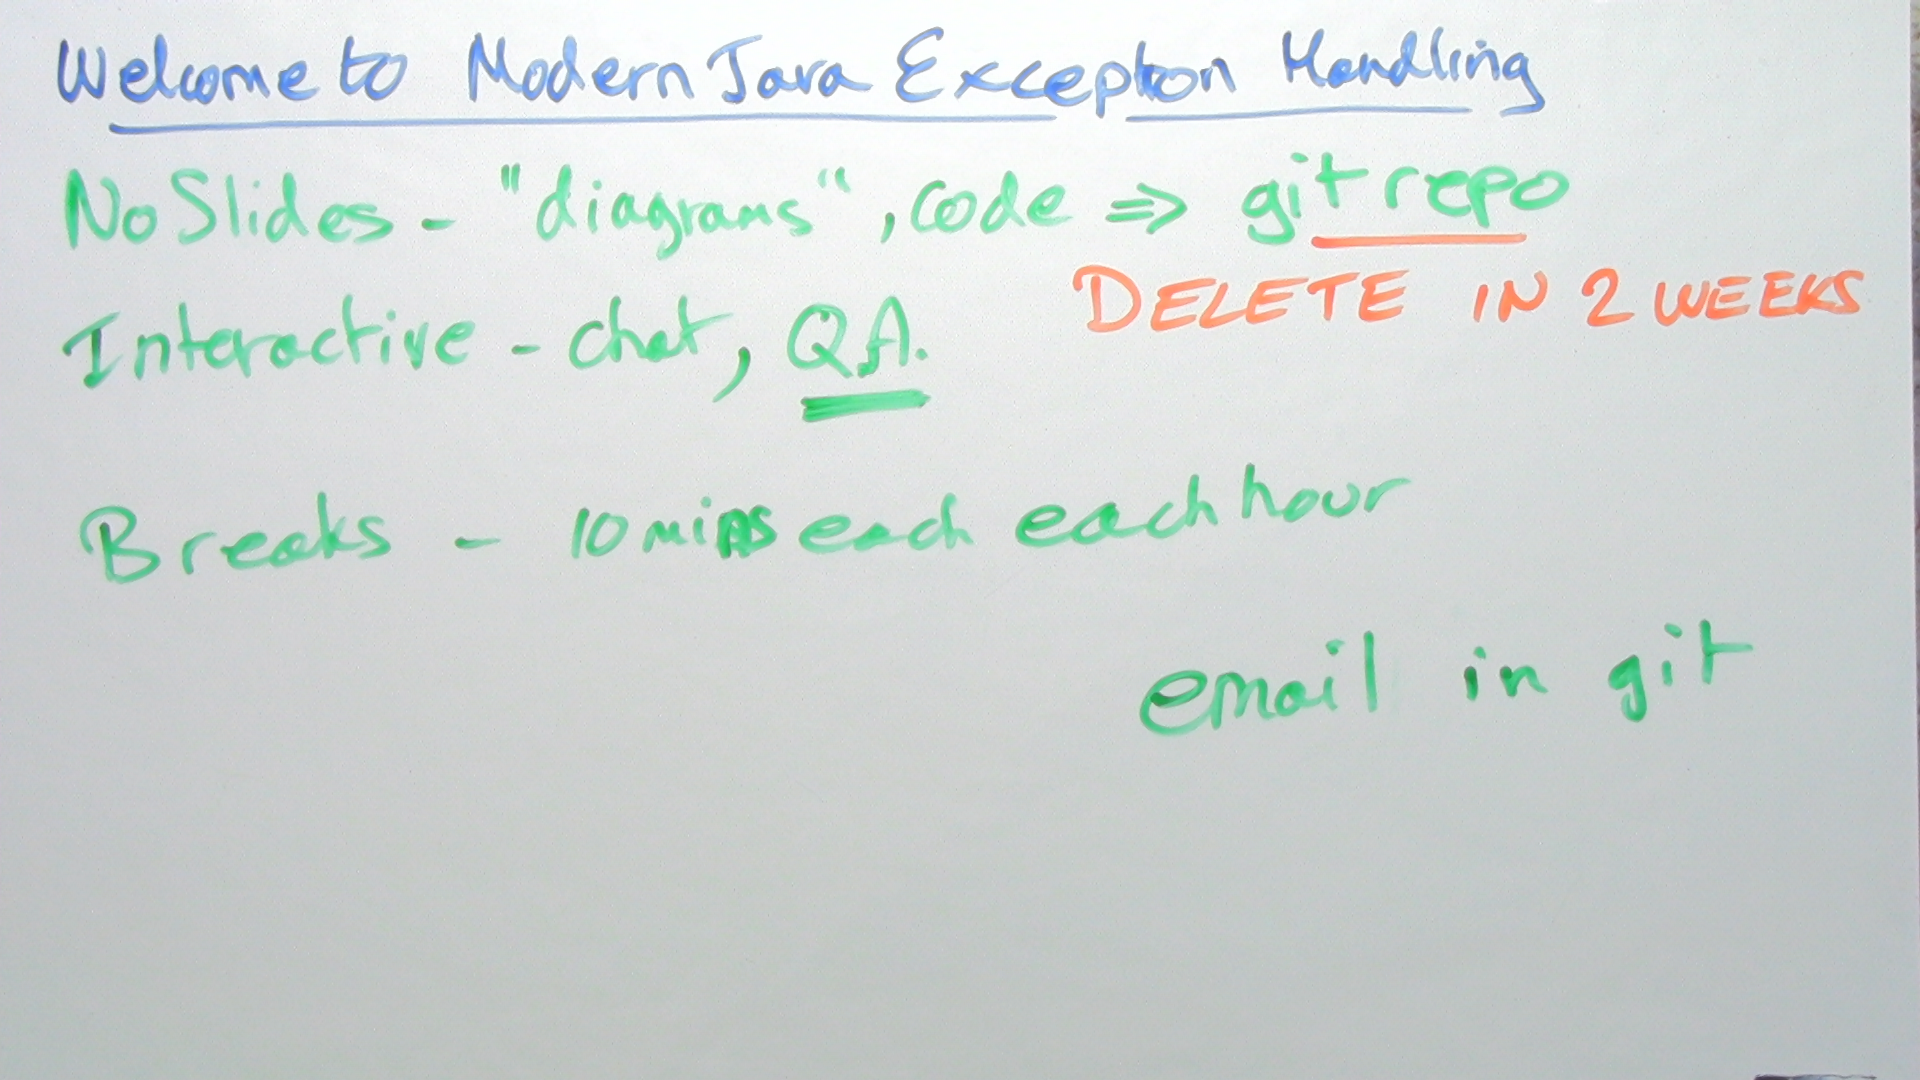 Welcome to Modern Java Exception Handling
No Slides - "diagrams", code => git repo
DELETE IN 2 WEEKS
Interactive - chat, QA.
Breaks - 10 mins each each hour
email in git